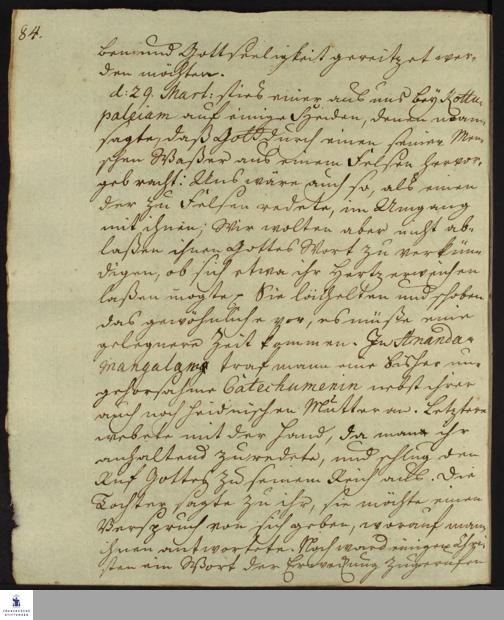 84.
ben und Gottseeligkeit gereitzet wer-
den möchten.
d: 29. Mart: sties einer aus uns bey Kottu-
paleiam auf einige Heiden, denen man
sagte, daß Gott durch einen seiner Men-
schen Waßer aus einem Felsen hervor-
gebracht: Uns wäre auch so, als einen
der zu Felsen redete, im Umgang
mit ihnen; Wir wolten aber nicht ab-
laßen ihnen Gottes Wort zu verkün-
digen, ob sich etwa ihr Hertz erweichen
laßen mögte. Sie lächelten und schoben
das gewöhnliche vor, es müste eine
gelegnere Zeit kommen. In Ananda-
mangalam traf mann eine bisher un-
gehorsahme Catechumenin nebst ihrer
auch noch heidnischen Mutter an. Letztere
webete mit der Hand, da man ihr
anhaltend zuredete, und schlug den
Ruf Gottes zu seinem Reich aus. Die
Tochter sagte zu ihr, sie möchte einen
Verspruch von sich geben, worauf man
ihnen antwortete. Noch ward einigen Chri-
sten ein Wort der Erweckung zugerufen
FRANCKESCHE
STIFTUNGEN